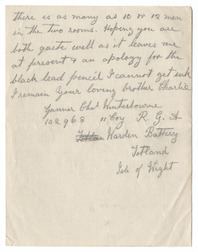 there is as many as 10 or 12 men
in the two rooms. Hoping you are
both quite well as it leaves me
at present & an apology for the
black lead pencil I cannot get ink
I remain Your loving brother Charlie
Gunner Chas Winterbourne
102968 11 Coy R. G. A
Warden Battery
Totland
Isle of Wight